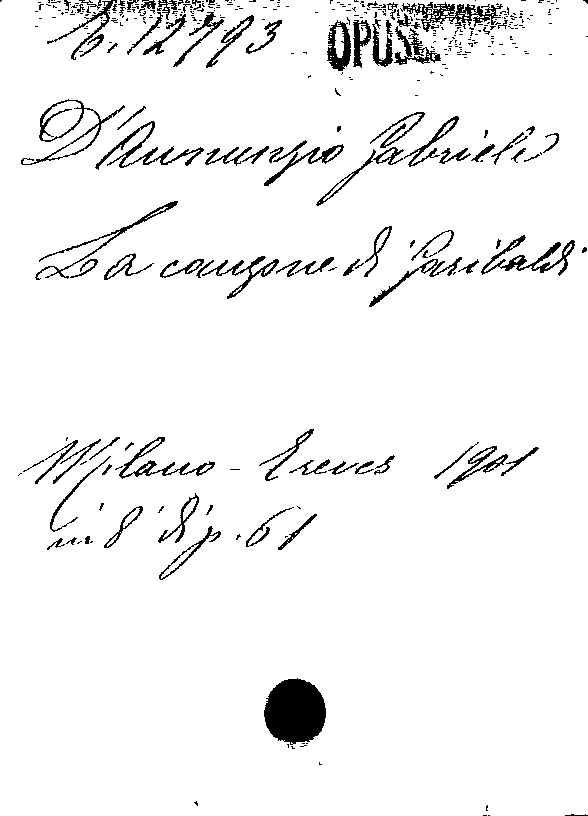 E.12793 OPUS.
D'Annunzio Gabriele
La canzone di Garibaldi
Milano - Treves 1901
in 8° di p. 61